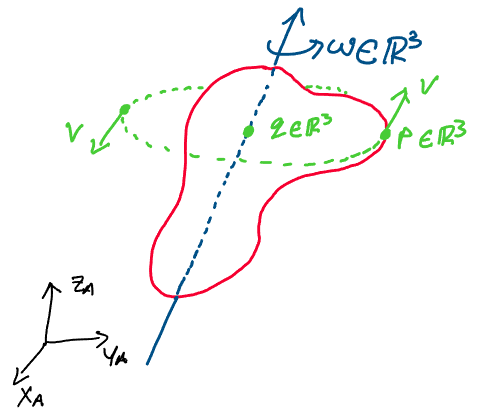 ω∈ℝ³
V
V
q∈ℝ³
p∈ℝ³
Z_A
Y_A
X_A